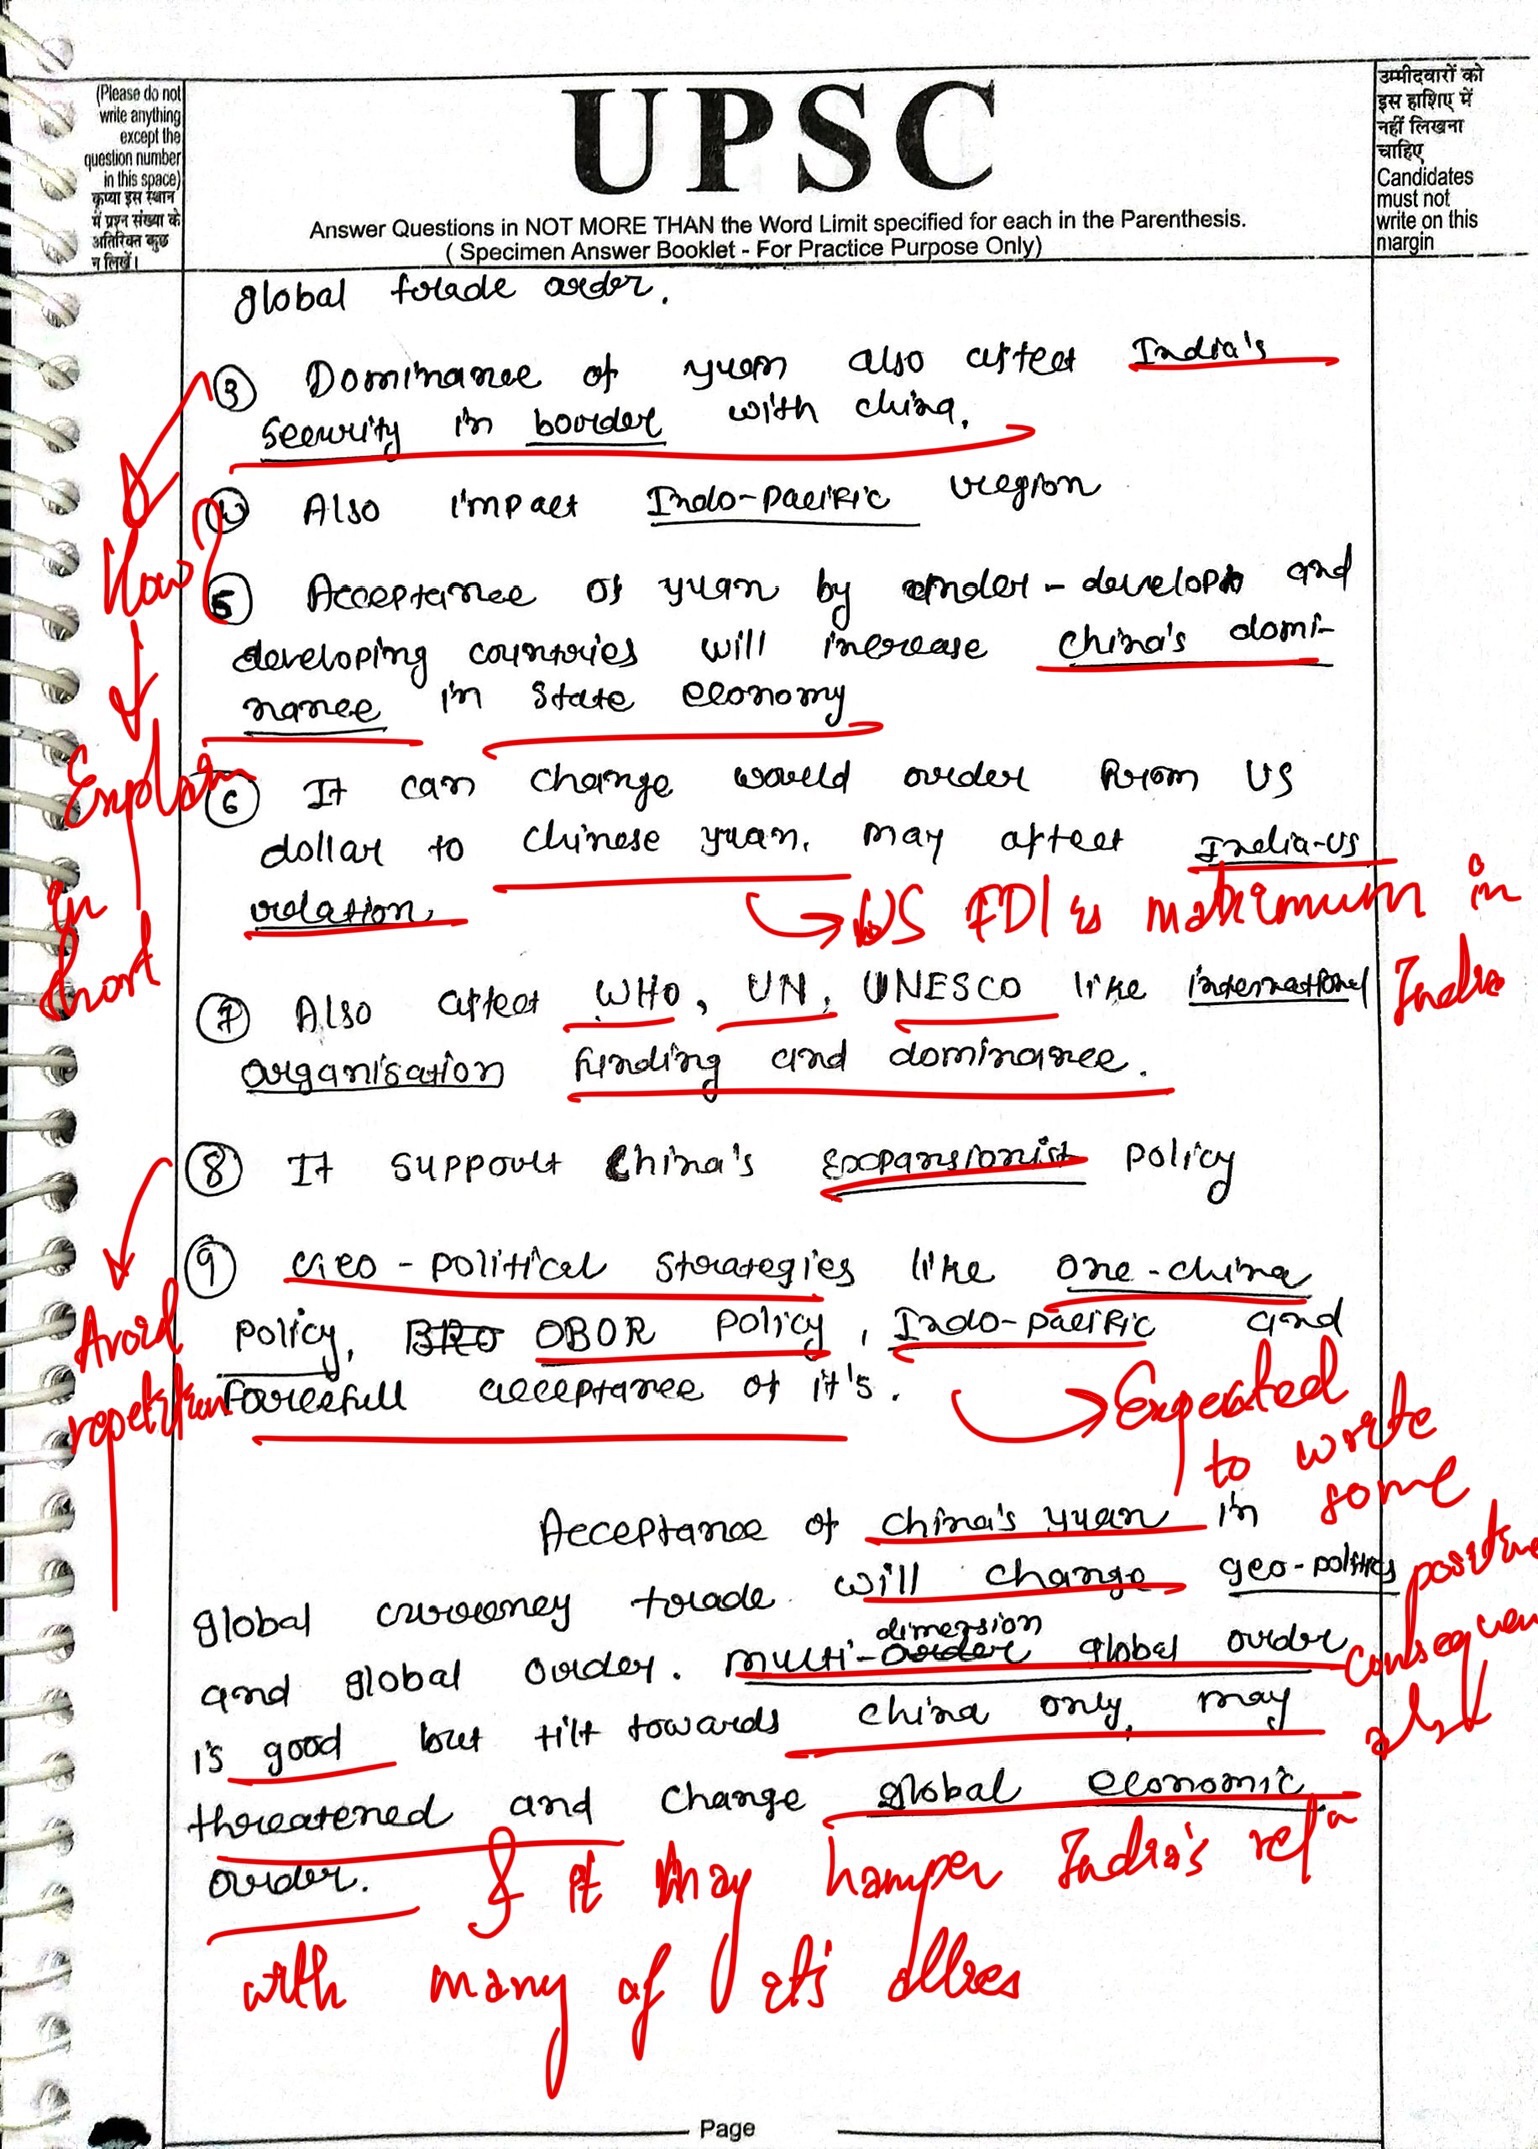 (Please do not
write anything
except the
question number
in this space)
कृप्या इस स्थान
में प्रश्न संख्या के
अतिरिक्त कुछ
न लिखें।
UPSC
Answer Questions in NOT MORE THAN the Word Limit specified for each in the Parenthesis.
( Specimen Answer Booklet - For Practice Purpose Only)
उम्मीदवारों को
इस हाशिए में
नहीं लिखना
चाहिए
Candidates
must not
write on this
margin
global trade order.
③ Dominance of yuan also affect India's
security in border with china.
④ Also impact Indo-Pacific region
How?
Explain
in
short
⑤ Acceptance of yuan by under-develop and
developing countries will increase china's domi-
nance in state economy
⑥ It can change world order from US
dollar to chinese yuan. may affect India-US
relation.
US FDI is maximum in
India
⑦ Also affect WHO, UN, UNESCO like international
organisation funding and dominance.
⑧ It support China's expansionist policy
Avoid
repetition
⑨ Geo-political strategies like one-china
policy, BRO OBOR policy, Indo-pacific and
forcefull acceptance of it's.
Expected
to write
some
positive
consequen
also
Acceptance of china's yuan in
global currency trade will change geo-politics
and global order. multi-order dimension global order
is good but tilt towards china only, may
threatened and change global economic
order.
& it may hamper India's relⁿ
with many of its allies
Page